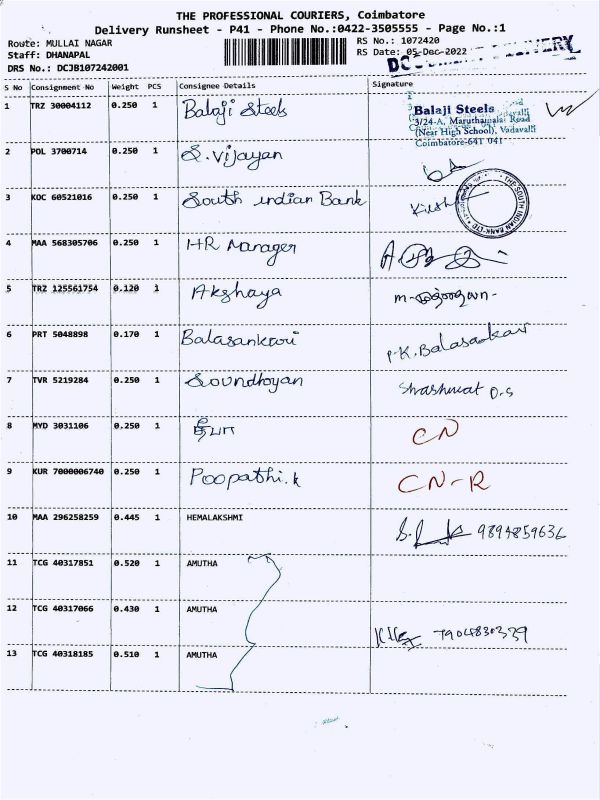 THE PROFESSIONAL COURIERS, Coimbatore
Delivery Runsheet - P41 - Phone No.:0422-3505555 - Page No.:1
Route: MULLAI NAGAR RS No.: 1072420
Staff: DHANAPAL RS Date: 05-Dec-2022
DRS No.: DCJB107242001 DELIVERY
S No Consignment No Weight PCS Consignee Details Signature
1 TRZ 30004112 0.250 1 Balaji Steels
Balaji Steels
3/24-A, Maruthamalai Road
(Near High School), Vadavalli
Coimbatore-641 041
2 POL 3700714 0.250 1 S.Vijayan
3 KOC 60521016 0.250 1 South indian Bank
THE SOUTH INDIAN BANK LTD
4 MAA 568305706 0.250 1 HR Manager
5 TRZ 125561754 0.120 1 Akshaya
6 PRT 5048898 0.170 1 P.K.Balasankar
7 TVR 5219284 0.250 1 Shashwat D.S
8 MYD 3031106 0.250 1 தீபா CN
9 KUR 7000006740 0.250 1 Poopathi.k CN-R
10 MAA 296258259 0.445 1 HEMALAKSHMI 9894859636
11 TCG 40317851 0.520 1 AMUTHA
12 TCG 40317066 0.430 1 AMUTHA 7904830339
13 TCG 40318185 0.510 1 AMUTHA